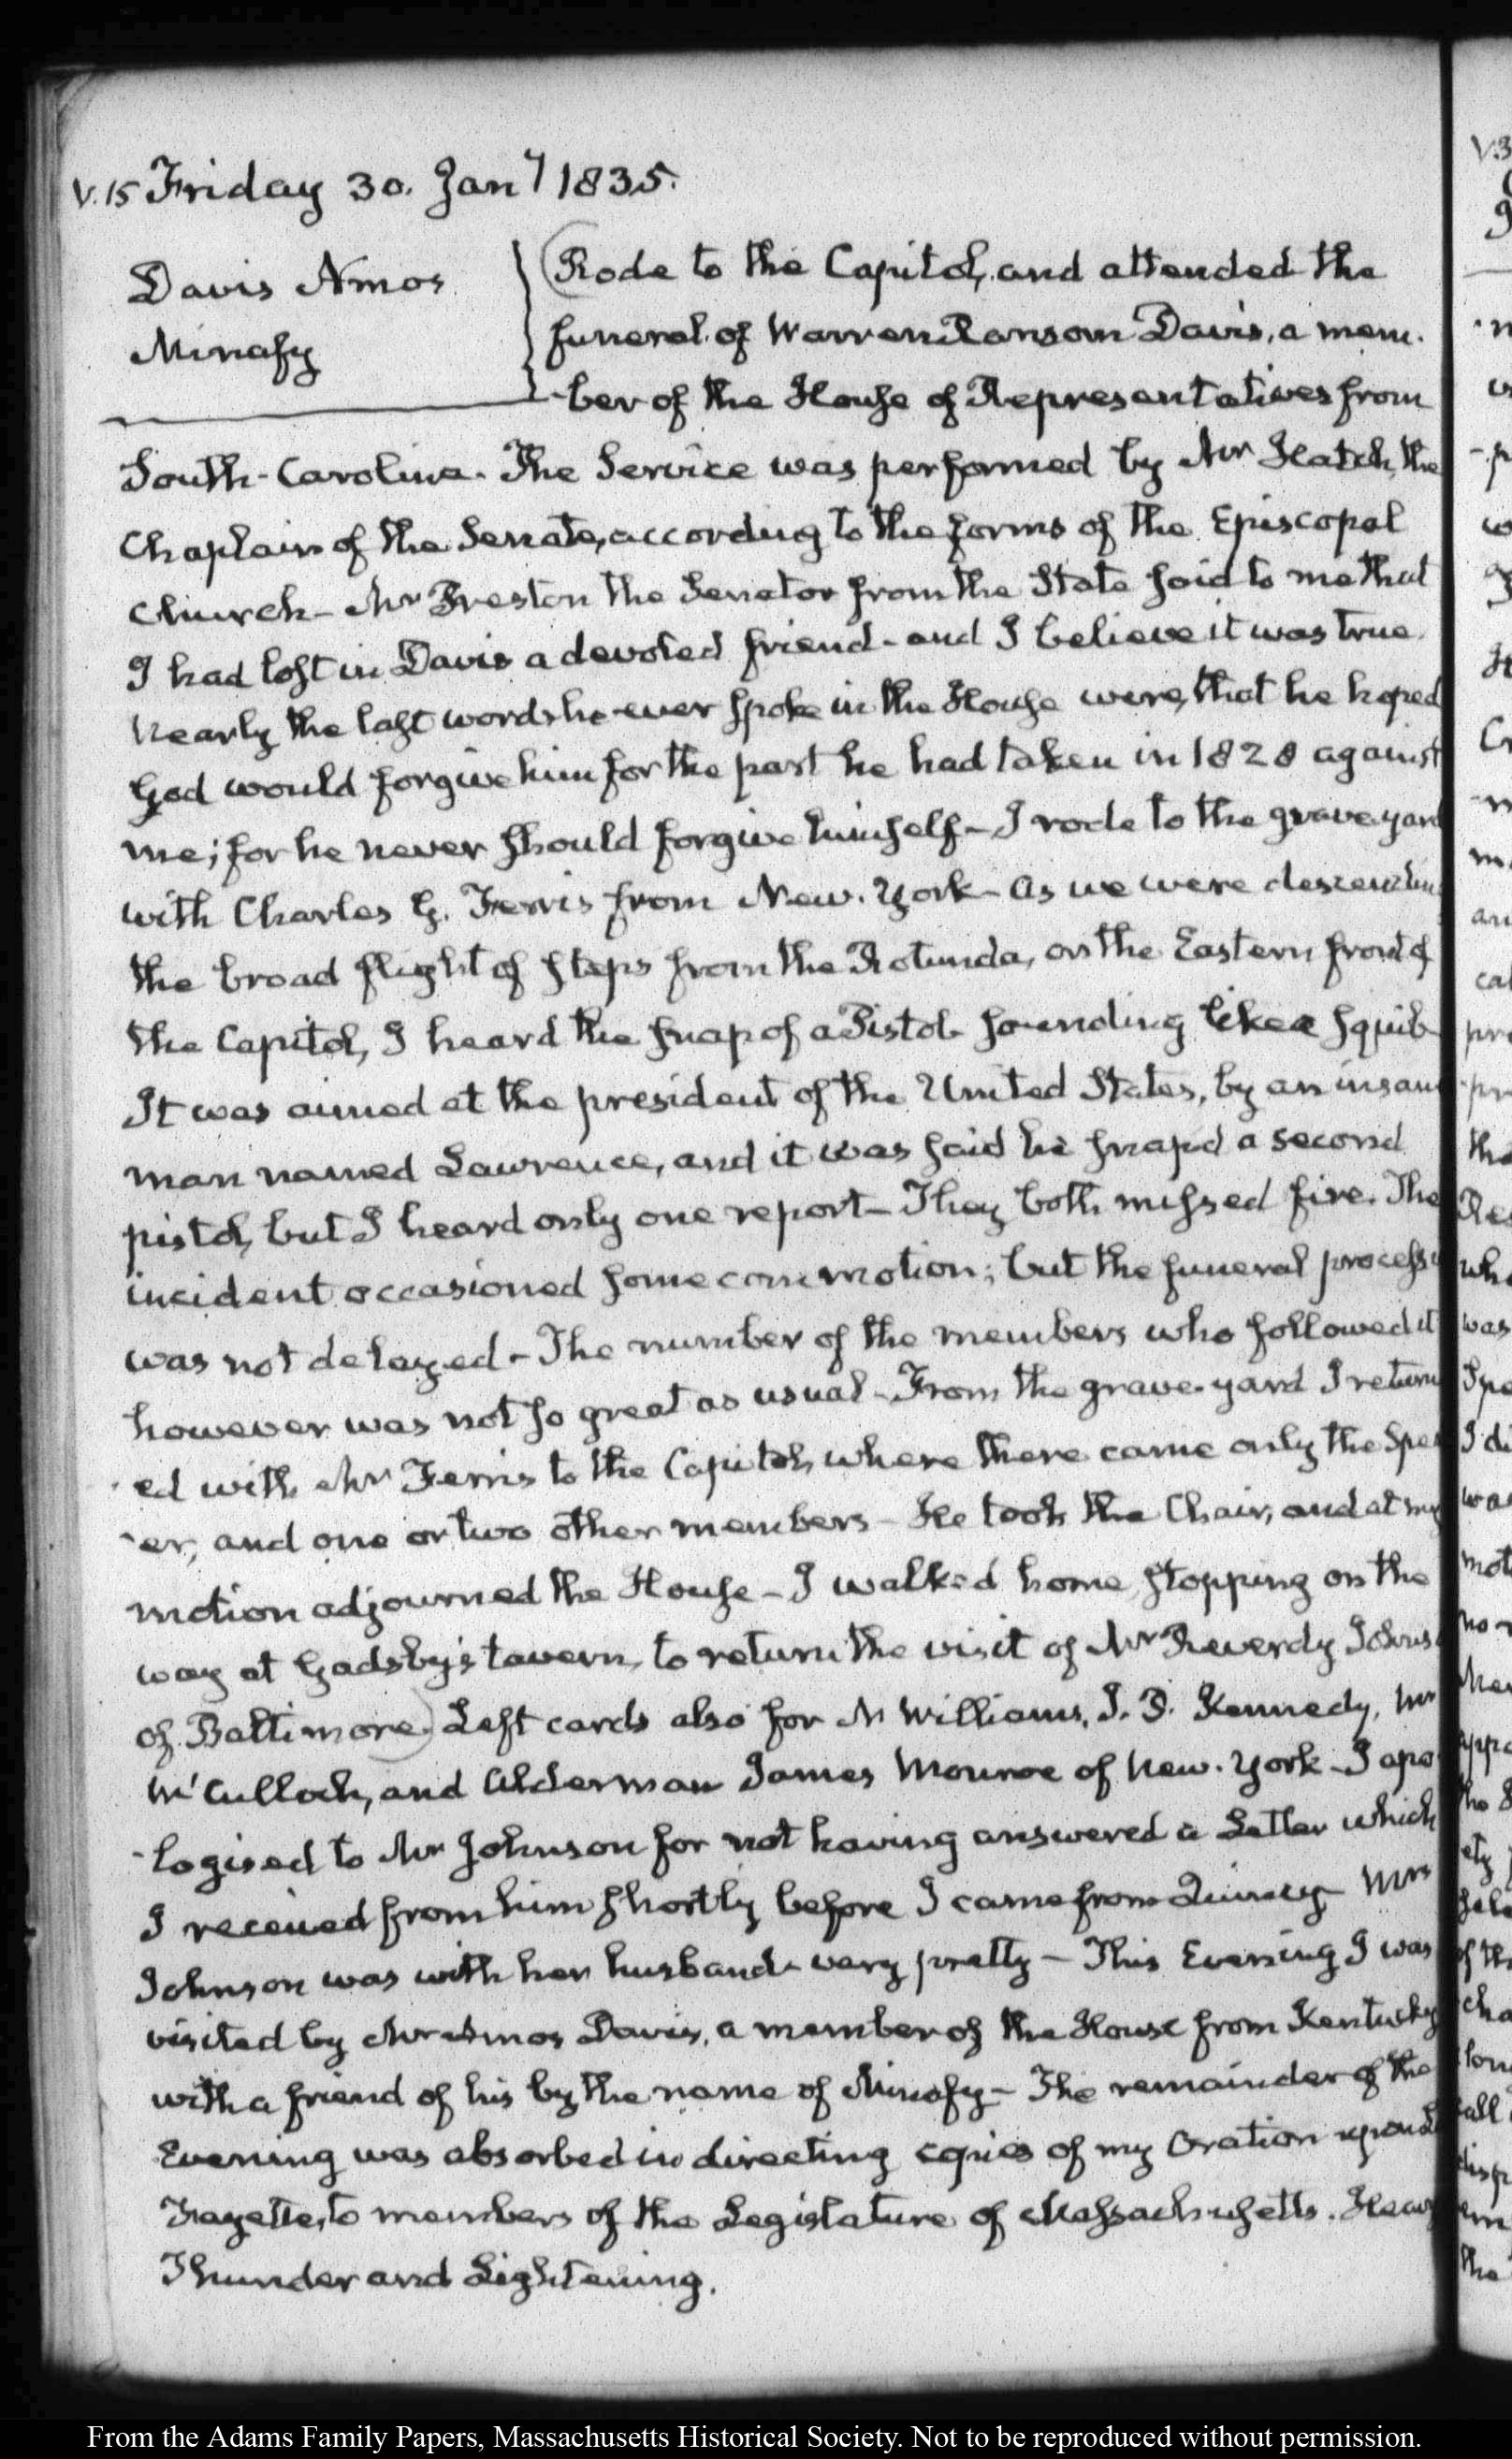 V.15 Friday 30. Jany 1835.
Davis Amos
Minafy
(Rode to the Capitol, and attended the
funeral of Warren Ransom Davis, a mem-
-ber of the House of Representatives from
South-Carolina. The Service was performed by Mr Hatch, the
Chaplain of the Senate, according to the forms of the Episcopal
Church– Mr Preston the Senator from the State said to me that
I had lost in Davis a devoted friend– and I believe it was true.
Nearly the last words he ever spoke in the House were, that he hoped
God would forgive him for the part he had taken in 1828 against
me; for he never should forgive himself– I rode to the grave yard
with Charles G. Ferris from New-York– As we were descending
the broad flight of steps from the Rotunda, on the Eastern front of
the Capitol, I heard the snap of a Pistol– sounding like a squib–
It was aimed at the president of the United States, by an insane
man named Lawrence, and it was said he snap'd a second
pistol, but I heard only one report– They both missed fire. The
incident occasioned some commotion; but the funeral process
was not delayed– The number of the members who followed it
however was not so great as usual– From the grave-yard I return
ed with Mr Ferris to the Capitol, where there came only the Speak
-er, and one or two other members– He took the Chair, and at my
motion adjourned the House– I walked home, stopping on the
way at Gadsby's tavern, to return the visit of Mr Reverdy Johns
of Baltimore.) Left cards also for N Williams, J. P. Kennedy, Mr
McCulloch, and Alderman James Monroe of New-York– I apo
-logised to Mr Johnson for not having answered a Letter which
I received from him shortly before I came from Quincy– Mrs
Johnson was with her husband– very pretty– This Evening I was
visited by Mr Amos Davis, a member of the House from Kentucky
with a friend of his by the name of Minafy– The remainder of the
Evening was absorbed in directing copies of my Oration upon La
Fayette, to members of the Legislature of Massachusetts. Heavy
Thunder and Lightening.
From the Adams Family Papers, Massachusetts Historical Society. Not to be reproduced without permission.